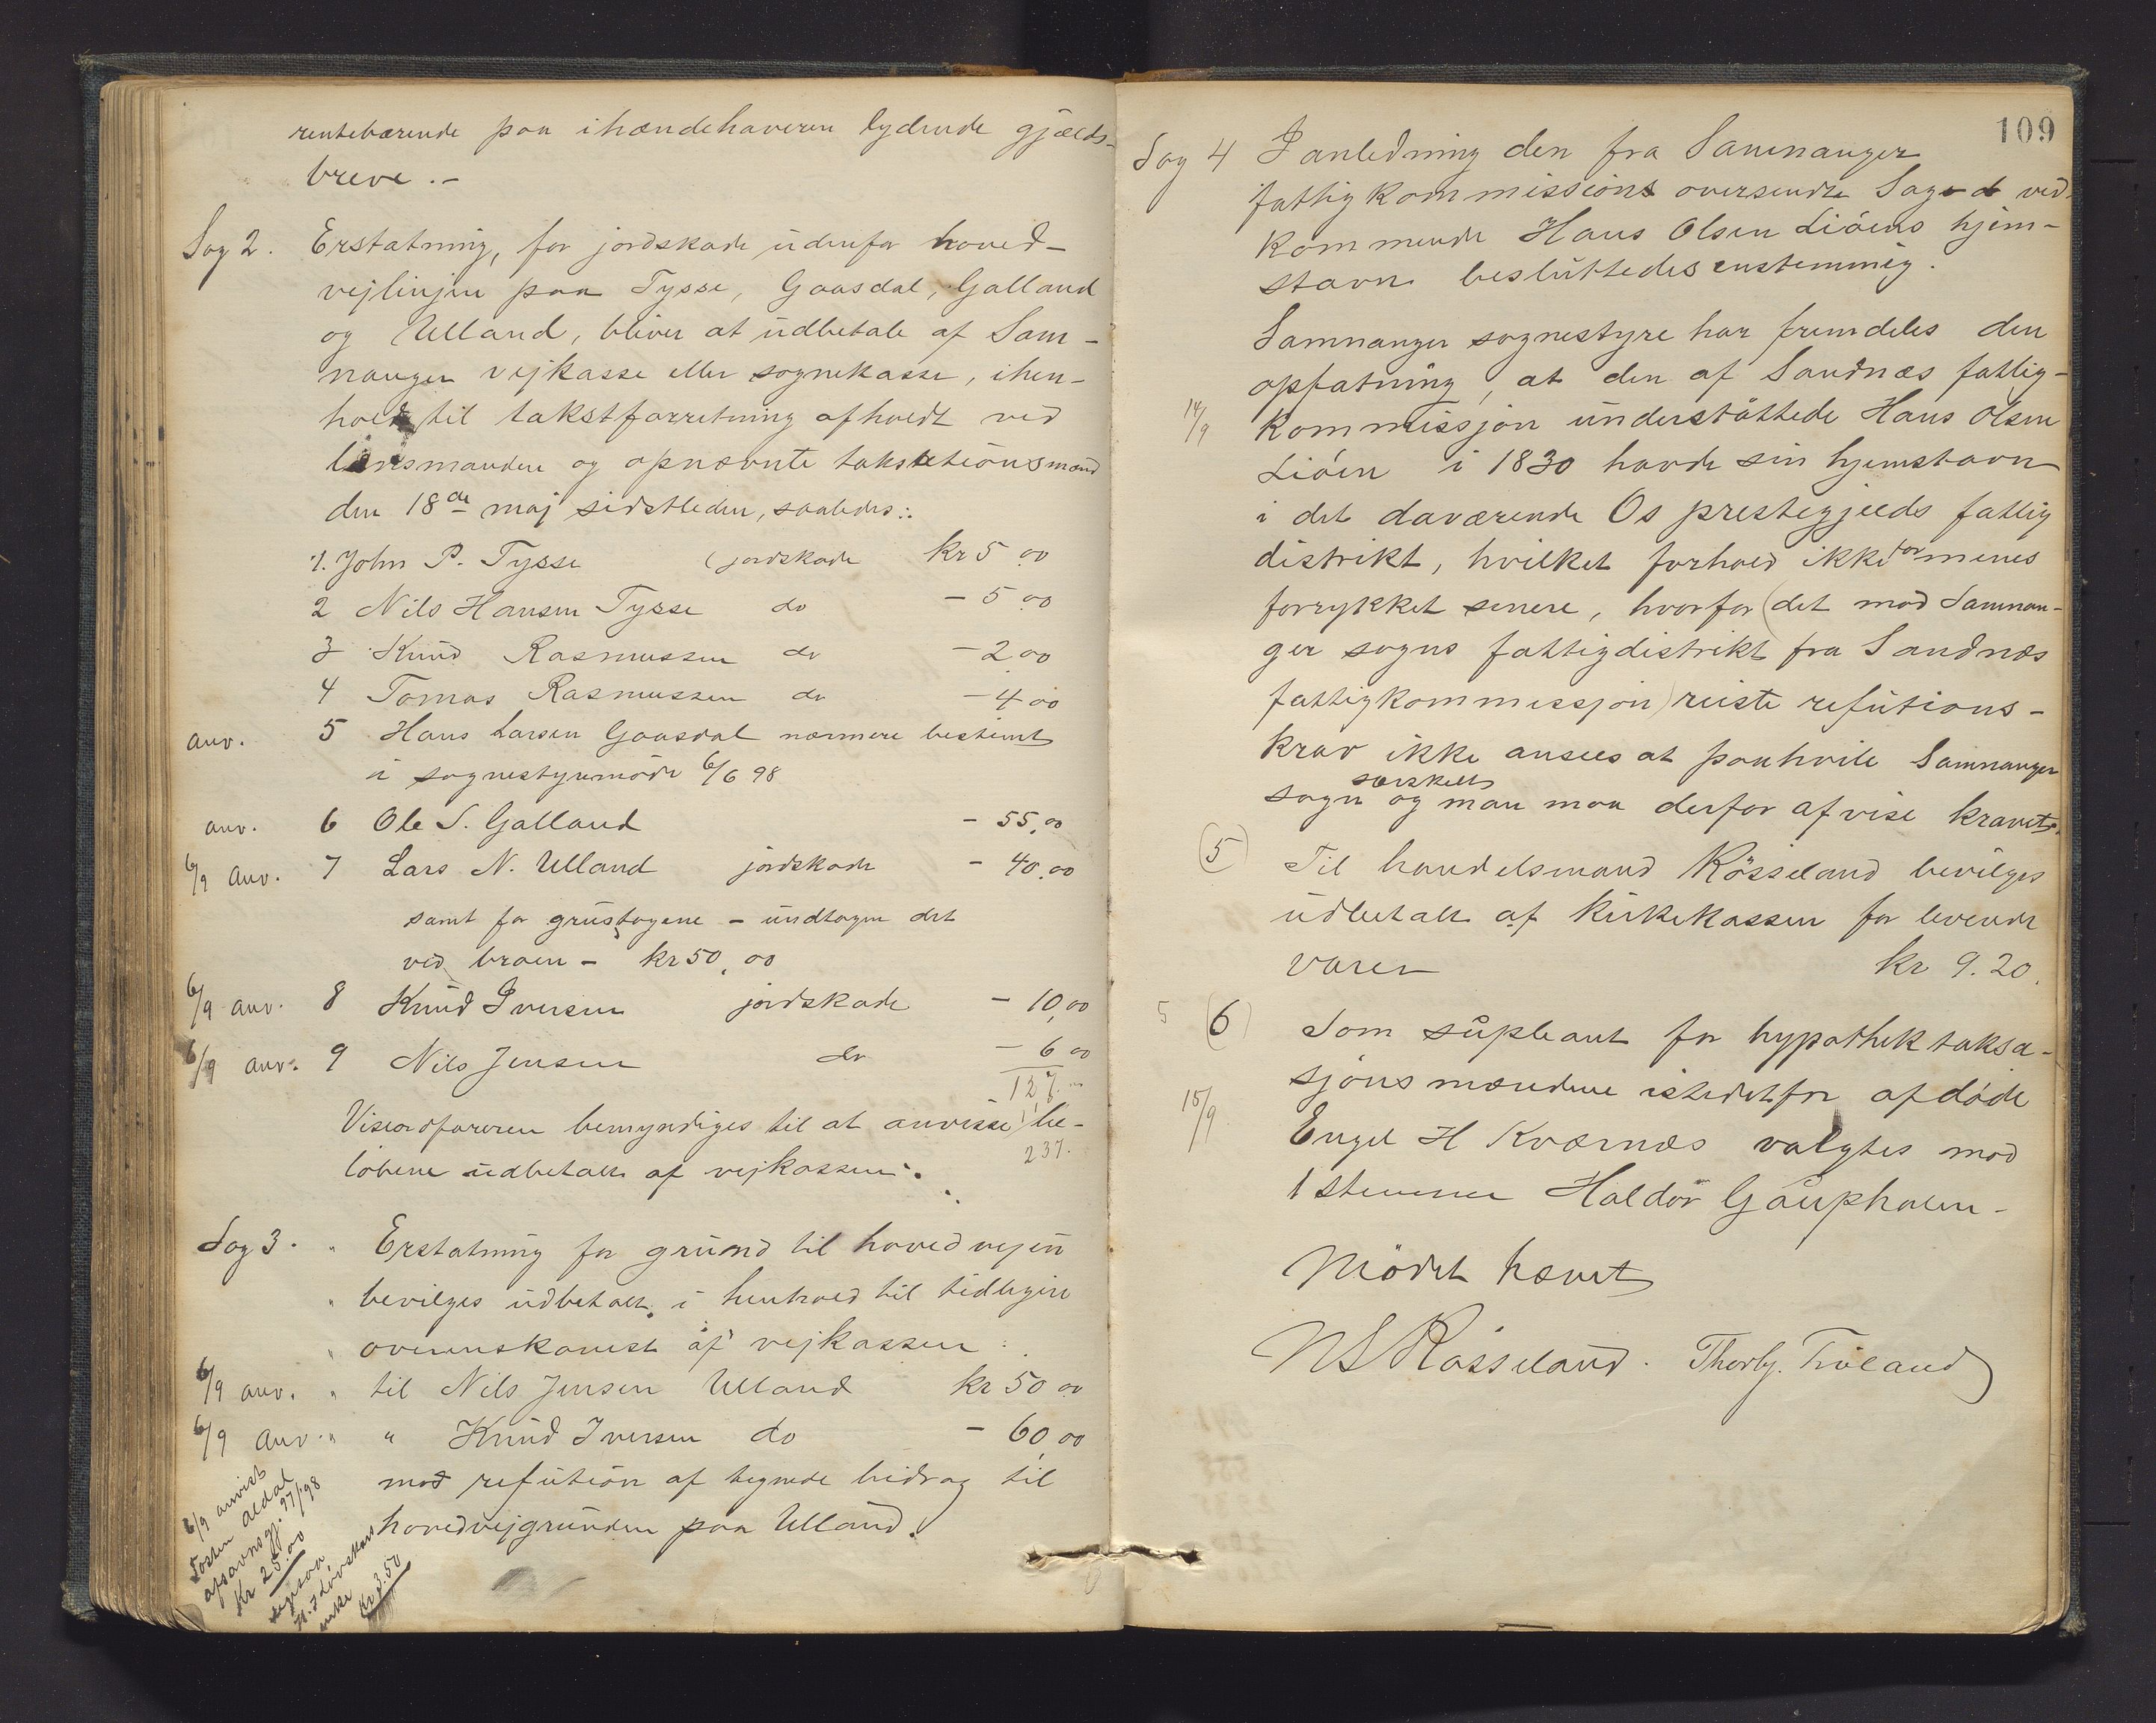 rentebærende paa ihændehaveren lydende gjælds-
breve.-
Sag 2. Erstatning, for jordskade udenfor hoved-
vejlinjen paa Tysse, Gaasdal, Galland
og Ulland, bliver at udbetale af Sam-
nanger vejkasse eller sognekasse, ihen-
hold til takstforretning afholdt ved
lensmanden og opnævnte takstetionsmænd
den 18de maj sidstleden, saaledes:.
1. John P. Tysse (jordskade kr 5.00
2 Nils Hansen Tysse do - 5.00
3 Knud Rasmussen do - 2.00
4 Tomas Rasmussen do - 4.00
anv. 5 Hans Larsen Gaasdal nærmere bestemt
i sognestyremöde 6/6 98
anv. 6 Ole S. Galland - 55,00
6/9 anv. 7 Lars N. Ulland jordskade - 40.00
samt for grustagene - undtagen det
ved broen - kr 50,00
6/9 anv. 8 Knud Iversen jordskade - 10,00
6/9 anv. 9 Nils Jensen do - 6 00
127.
Viseordföreren bemyndiges til at anvisse be-
237.
löbene udbetalt af vejkassen.
Sag 3. " Erstatning for grund til hovedvejen
" bevilges udbetalt i henhold til tidligere
" overenskomst af vejkassen:
6/9 anv. " til Nils Jensen Ulland kr 50 00
6/9 anv. " " Knud Iversen do - 60,00
mod refution af tegnede bidrag til
hovedvejgrunden paa Ulland.
6/9 anvist
Tosten Aldal
afsavnsgj. 97/98
Kr 25.00
enke Kr 3.50
109
Sag 4 I anledning den fra Samnanger
fattigkommissions oversendte Sag d ved-
kommende Hans Olsen Liöens hjem-
stavn besluttedes enstemmig.
Samnanger sognestyre har fremdeles den
opfatning, at den af Sandnæs fattig-
14/9 kommissjon understöttede Hans Olsen
Liöen i 1830 havde sin hjemstavn
i det daværende Os prestegjelds fattig
distrikt, hvilket forhold ikke formenes
forrykket senere, hvorfor (det mod Samnan-
ger sogns fattigdistrikt fra Sandnæs
fattigkommissjon) reiste refutions-
krav ikke ansees at paahvile Samnanger
særskilt
sogn og man maa derfor afvise kravet.
(5) Til handelsmand Rösseland bevilges
udbetalt af kirkekassen for leverede
varer kr 9.20.
5 (6) Som supleant for hypothektaksa-
sjonsmændene istedetfor afdöde
15/9 Engel H Kværnæs valgtes mod
1 stemme Haldor Gaupholm-
Mödet hævet
NS Rösseland. Thorbj. Tröland